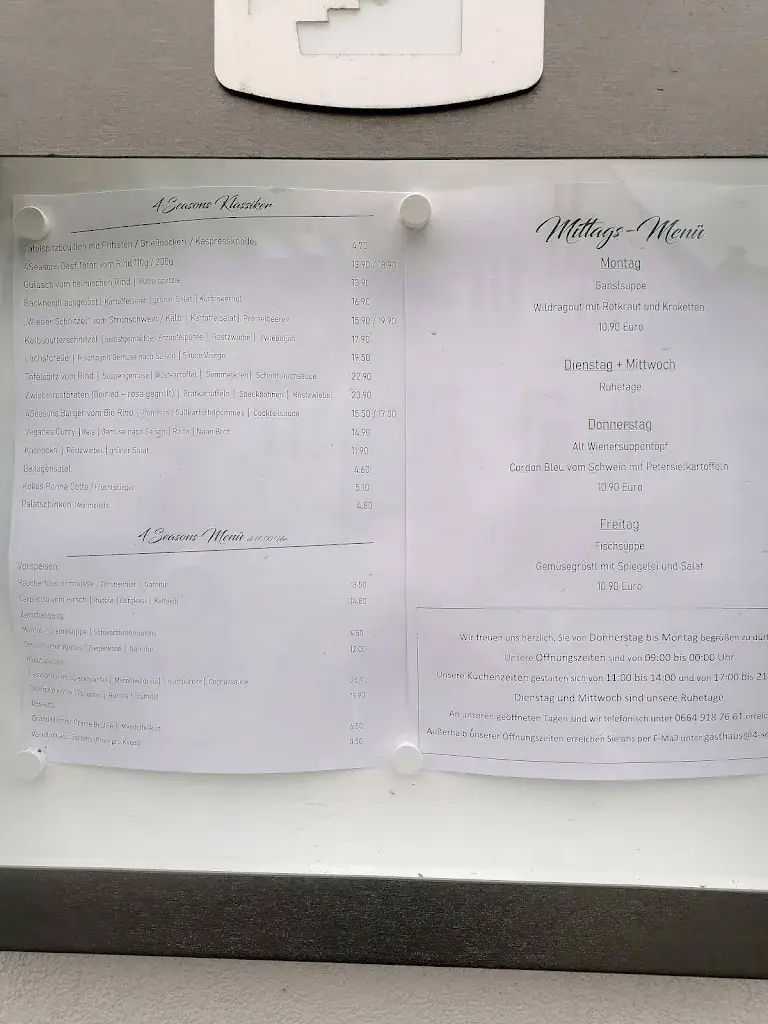 4 Seasons Klassiker
Tafelspitzbouillon mit Fritaten / Grießnockerl / Kaspressknödel 4.70
4Seasons Beef Tatar vom Rind 110g / 200g 13.90 / 18.90
Gulasch vom heimischen Rind | Butterspätzle 13.90
Backhendl ausgelöst | Kartoffelsalat | grüner Salat | Kürbiskernöl 16.90
„Wiener Schnitzel" vom Strohschwein / Kalb | Kartoffelsalat | Preiselbeeren 15.90 / 19.90
Kalbsbutterschnitzel | selbstgemachtes Erdäpfelpüree | Röstzwiebel | Zwiebeljus 17.90
Lachsforelle | Risotto mit Gemüse nach Saison | Sauce Vierge 19.50
Tafelspitz vom Rind | Suppengemüse | Röstkartoffel | Semmelkren | Schnittlauchsauce 22.90
Zwiebelrostbraten (Beiried – rosa gegrillt) | Bratkartoffeln | Speckbohnen | Röstzwiebel 23.90
4Seasons Burger vom Bio Rind | Pommes / Süßkartoffelpommes | Cocktailsauce 15.50 / 17.00
Veganes Curry | Reis | Gemüse nach Saison | Raita | Naan Brot 14.90
Kasnockn | Röstzwiebel | grüner Salat 11.90
Beilagensalat 4.60
Kokos Panna Cotta | Fruchtspiegel 5.10
Palatschinken | Marmelade 4.80
4 Seasons Menü
Vorspeisen:
Räucherforellenmousse | Garnitur 13.50
Carpaccio vom Hirsch | Rucola | Bergkäse | 14.80
Zwischengang:
6.50
Ziegenkäse | Garnitur 12.00
Cognacsauce
19.90
Crème Brûlée 6.50
3.50
Mittags-Menü
Montag
Ganslsuppe
Wildragout mit Rotkraut und Kroketten
10.90 Euro
Dienstag + Mittwoch
Ruhetage
Donnerstag
Alt Wienersuppentopf
Cordon Bleu vom Schwein mit Petersielkartoffeln
10.90 Euro
Freitag
Fischsuppe
Gemüsegröstl mit Spiegelei und Salat
10.90 Euro
Wir freuen uns herzlich, Sie von Donnerstag bis Montag begrüßen zu dürf
Unsere Öffnungszeiten sind von 09:00 bis 00:00 Uhr
Unsere Küchenzeiten gestalten sich von 11:00 bis 14:00 und von 17:00 bis 21
Dienstag und Mittwoch sind unsere Ruhetage
An unseren geöffneten Tagen sind wir telefonisch unter 0664 918 76 61 erreic
Außerhalb unserer Öffnungszeiten erreichen Sie uns per E-Mail unter gasthaus@4-se